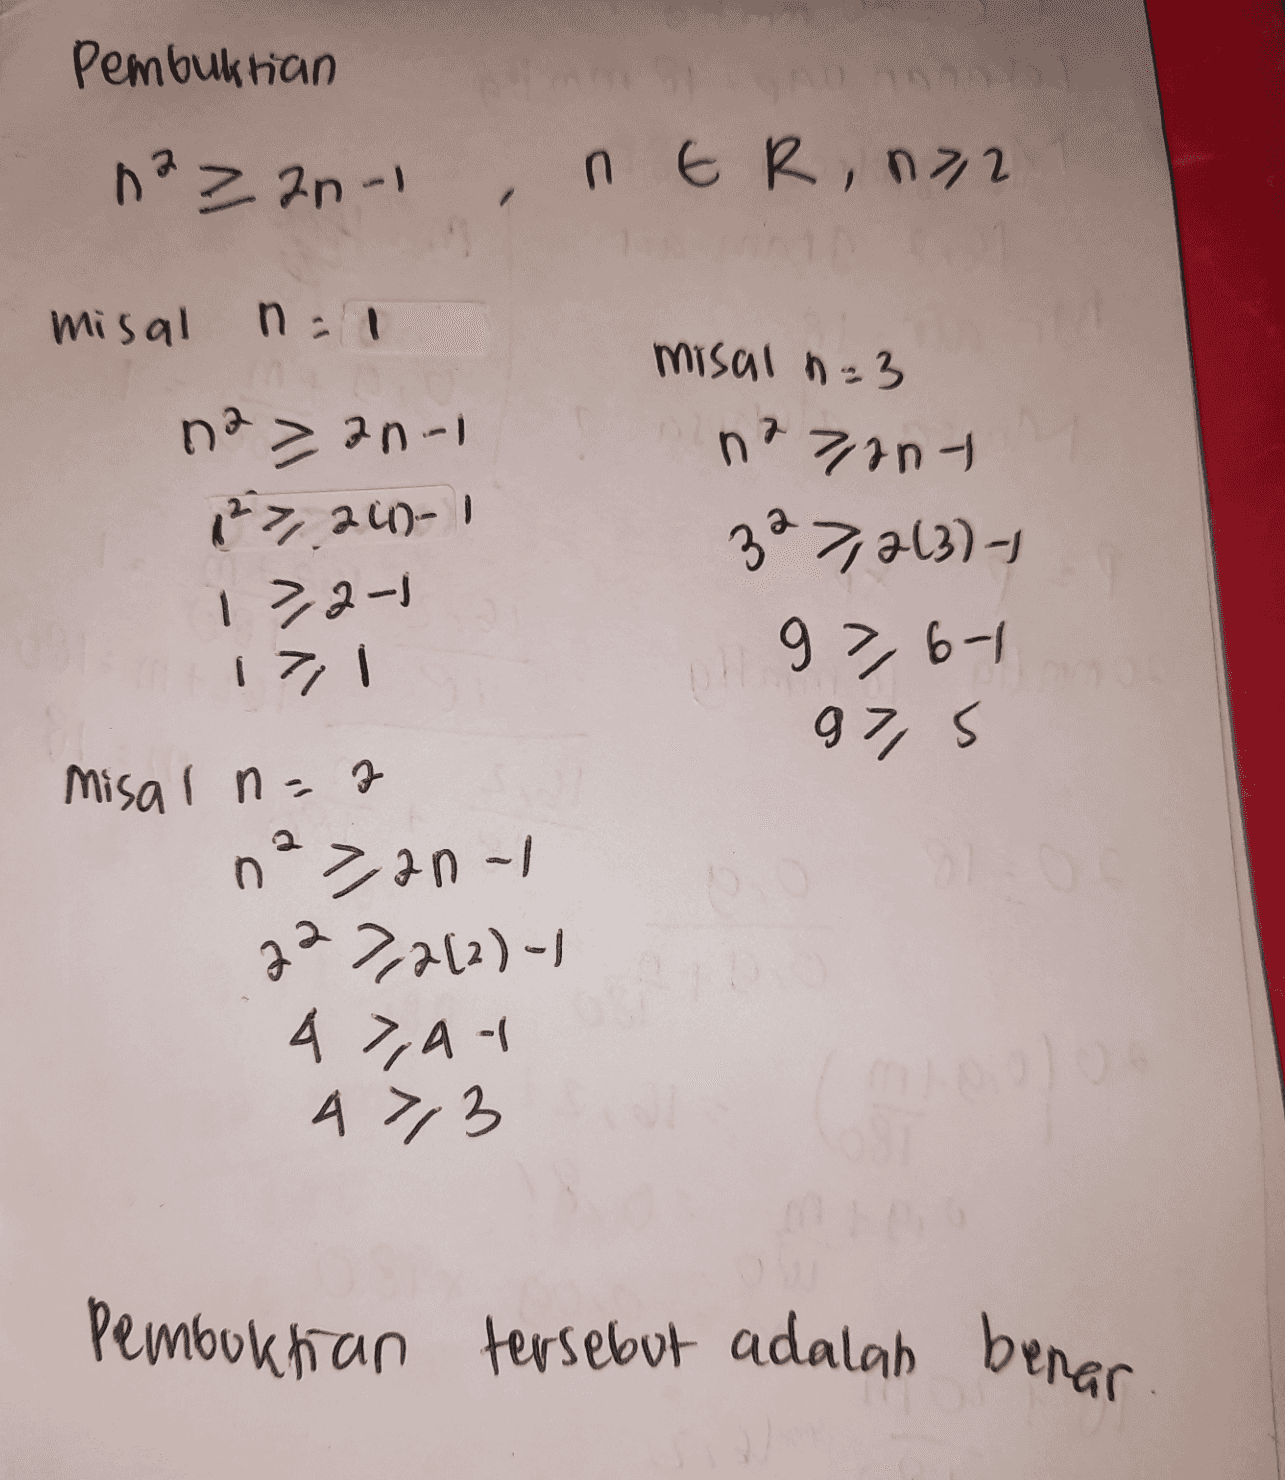 Pembuktian
n² ≥ 2n-1 , n ∈ R, n ≥ 2
misal n = 1
n² ≥ 2n-1
1² ≥ 2(1)-1
1 ≥ 2-1
1 ≥ 1
misal n = 2
n² ≥ 2n-1
2² ≥ 2(2)-1
4 ≥ 4-1
4 ≥ 3
misal n = 3
n² ≥ 2n-1
3² ≥ 2(3)-1
9 ≥ 6-1
9 ≥ 5
Pembuktian tersebut adalah benar.